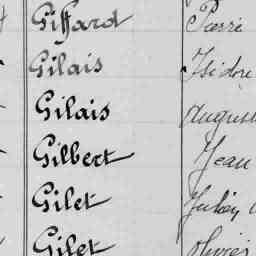 Giffard Pierre
Gilais Isidore
Gilais Auguste
Gilbert Jean
Gilet Julien
Gilet Olivier